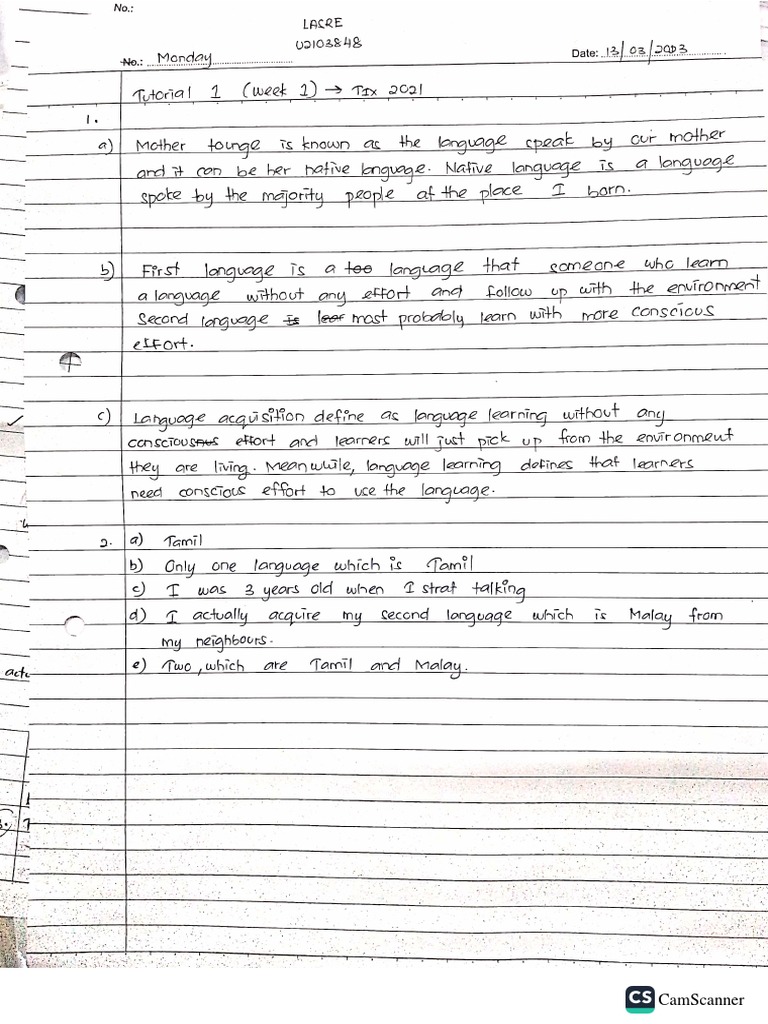 No.:
LACRE
U2103848
No.: Monday
Date: 13/03/2003
Tutorial 1 (week 1) → TIX 2021
1.
a) Mother tounge is known as the language speak by our mother
and it can be her native language. Native language is a language
spoke by the majority people at the place I born.
b) First language is a too language that someone who learn
a language without any effort and follow up with the environment
Second language is lear most probably learn with more conscious
effort.
c) Language acquisition define as language learning without any
consciousnus effort and learners will just pick up from the environment
they are living. Meanwile, language learning defines that learners
need conscious effort to use the language.
2. a) Tamil
b) Only one language which is Tamil
c) I was 3 years old when I strat talking
d) I actually acquire my second language which is Malay from
my neighbours.
e) Two, which are Tamil and Malay.
actu
CS CamScanner